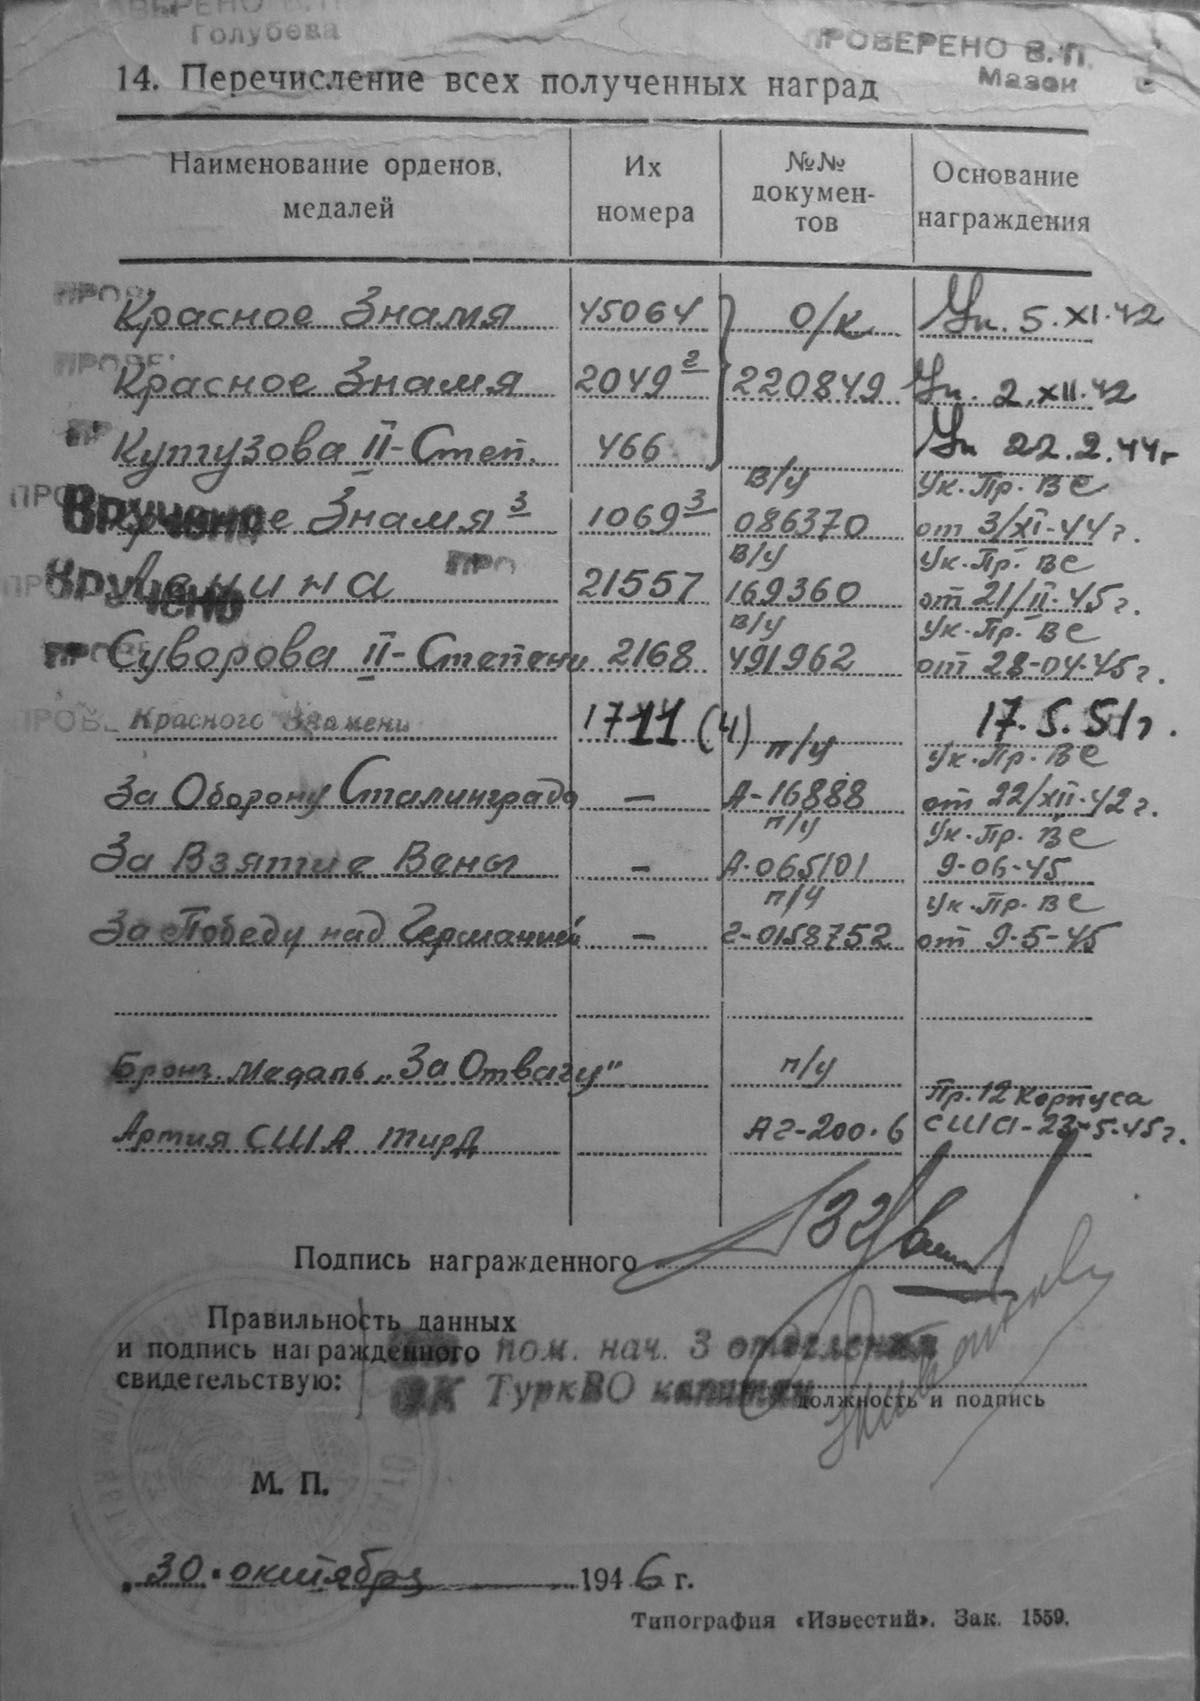 ПРОВЕРЕНО В.П.
Голубева
ПРОВЕРЕНО В.П.
Мазон
14. Перечисление всех полученных наград
Наименование орденов, медалей
Их номера
№№ докумен-тов
Основание награждения
Красное Знамя 45064 о/к Ук. 5.XI.42
Красное Знамя 2049 2 220849 Ук. 2.XII.42
Кутузова II-Степ. 466 Ук 22.2.44г
в/у Ук.Пр.ВС
Вручено Знамя 3 1069 3 086370 от 3/XI-44г.
в/у Ук.Пр.ВС
Вручено Ленина 21557 169360 от 21/II-45г.
в/у Ук.Пр.ВС
Суворова II-Степени 2168 491962 от 28-04-45г.
Красного Знамени 1711 (4) 17.5.51г.
п/у Ук.Пр.ВС
За Оборону Сталинграда — А-16888 от 22/XII-42г.
п/у Ук.Пр.ВС
За Взятие Вены — А-065101 9-06-45
п/у Ук.Пр.ВС
За Победу над Германией — Г-0158752 от 9-5-45
Бронз. Медаль „За Отвагу" п/у
Пр.12 Корпуса
Армия США АГ-200.6 США-23-5-45г.
Подпись награжденного
Правильность данных
и подпись награжденного
свидетельствую:
пом. нач. 3 отделения
ОК ТуркВО капитан
должность и подпись
М. П.
„30" октября 1946 г.
Типография «Известий». Зак. 1559.